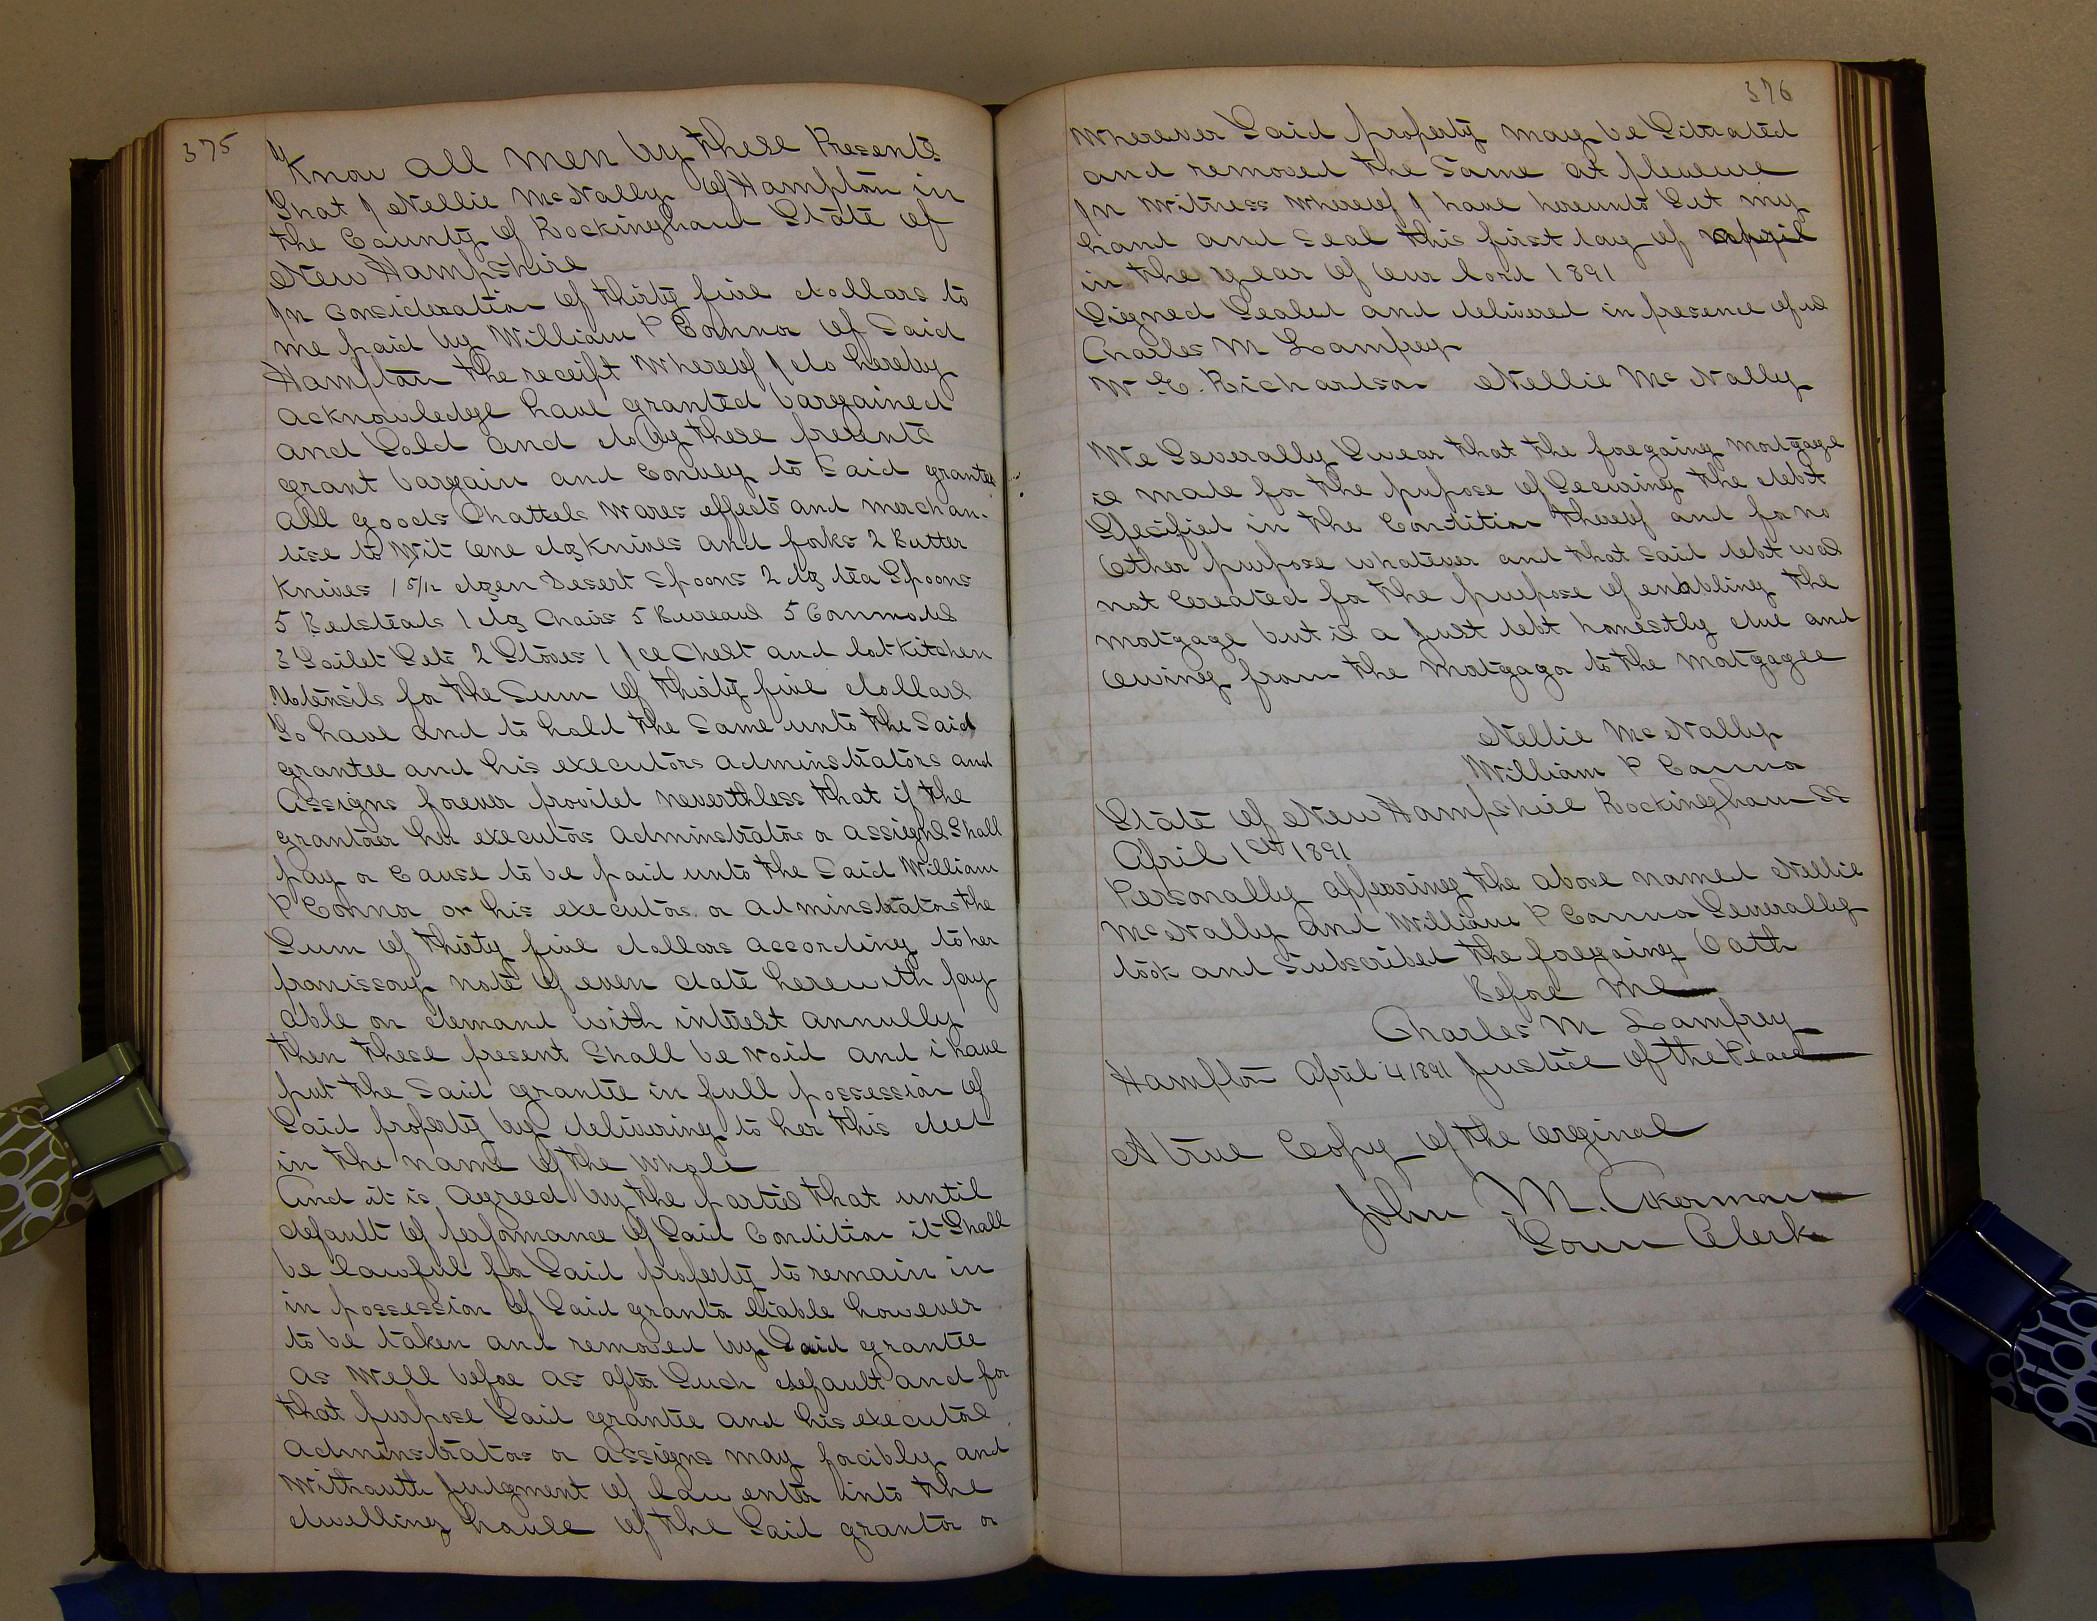 375
Know all men by these Presents
That I Nellie McNally of Hampton in
the County of Rockingham State of
New Hampshire
In consideration of thirty five dollars to
me paid by William P Connor of Said
Hampton the receipt whereof I do hereby
acknowledge have granted bargained
and Sold and do by these presents
grant bargain and Convey to Said grantee
all goods Chattels Wares effects and merchan-
dise to Wit One dz Knives and forks 2 Butter
Knives 1 5/12 dzen Desert Spoons 2 dz tea Spoons
5 Bedsteads 1 dz Chairs 5 Bureaus 5 Commodes
3 Toilet Sets 2 Stoves 1 Ice Chest and lot Kitchen
Utensils for the Sum of thirty five dollars
To have and to hold the Same unto the Said
grantee and his executors adminstrators and
Assigns forever provided neverthless that if the
grantoer her executors adminstrators or assigns Shall
pay or Cause to be paid unto the Said William
P Connor or his executors or adminstrators the
Sum of thirty five dollars according to her
promissory note of even date herewith pay
able on demand with interest annully
then these present Shall be void and i have
put the Said grantee in full possession of
Said property by delivering to her this deed
in the name of the Whole
And it is agreed by the parties that until
default of performance of Said Condition it Shall
be lawful for Said property to remain in
in possession of Said grantor liable however
to be taken and removed by Said grantee
as Well before as after Such default and for
that purpose Said grantee and his executors
adminstrators or assigns may forcibly and
Withouth Judgment of law enter into the
dwelling house of the Said grantor or
376
Wherever Said property may be Situated
and removed the Same at pleasure
In Witness Whereof I have hereunto Set my
hand and Seal this first day of april
in the year of Our lord 1891
Signed Sealed and delivered in presence of us
Charles M Lamprey
W E. Richardson Nellie McNally
We Severally Swear that the foregoing Mortgage
is made for the pupose of Securing the debt
Specified in the Condition thereof and for no
Other purpose whatever and that said debt was
not Cereated for the purpose of enabling the
mortgage but is a Just debt honestly due and
Owing from the Mortgagor to the Mortgagee
Nellie McNally
William P Connor
State of New Hampshire Rockingham SS
April 1st 1891
Personally appearing the above named Nellie
McNally and William P Connor Severally
took and Subscribed the foregoing Oath
Before Me
Charles M Lamprey
Hampton April 4 1891 Justice of the Peace
A true Copy of the Orginal
John M. Akerman
Town Clerk